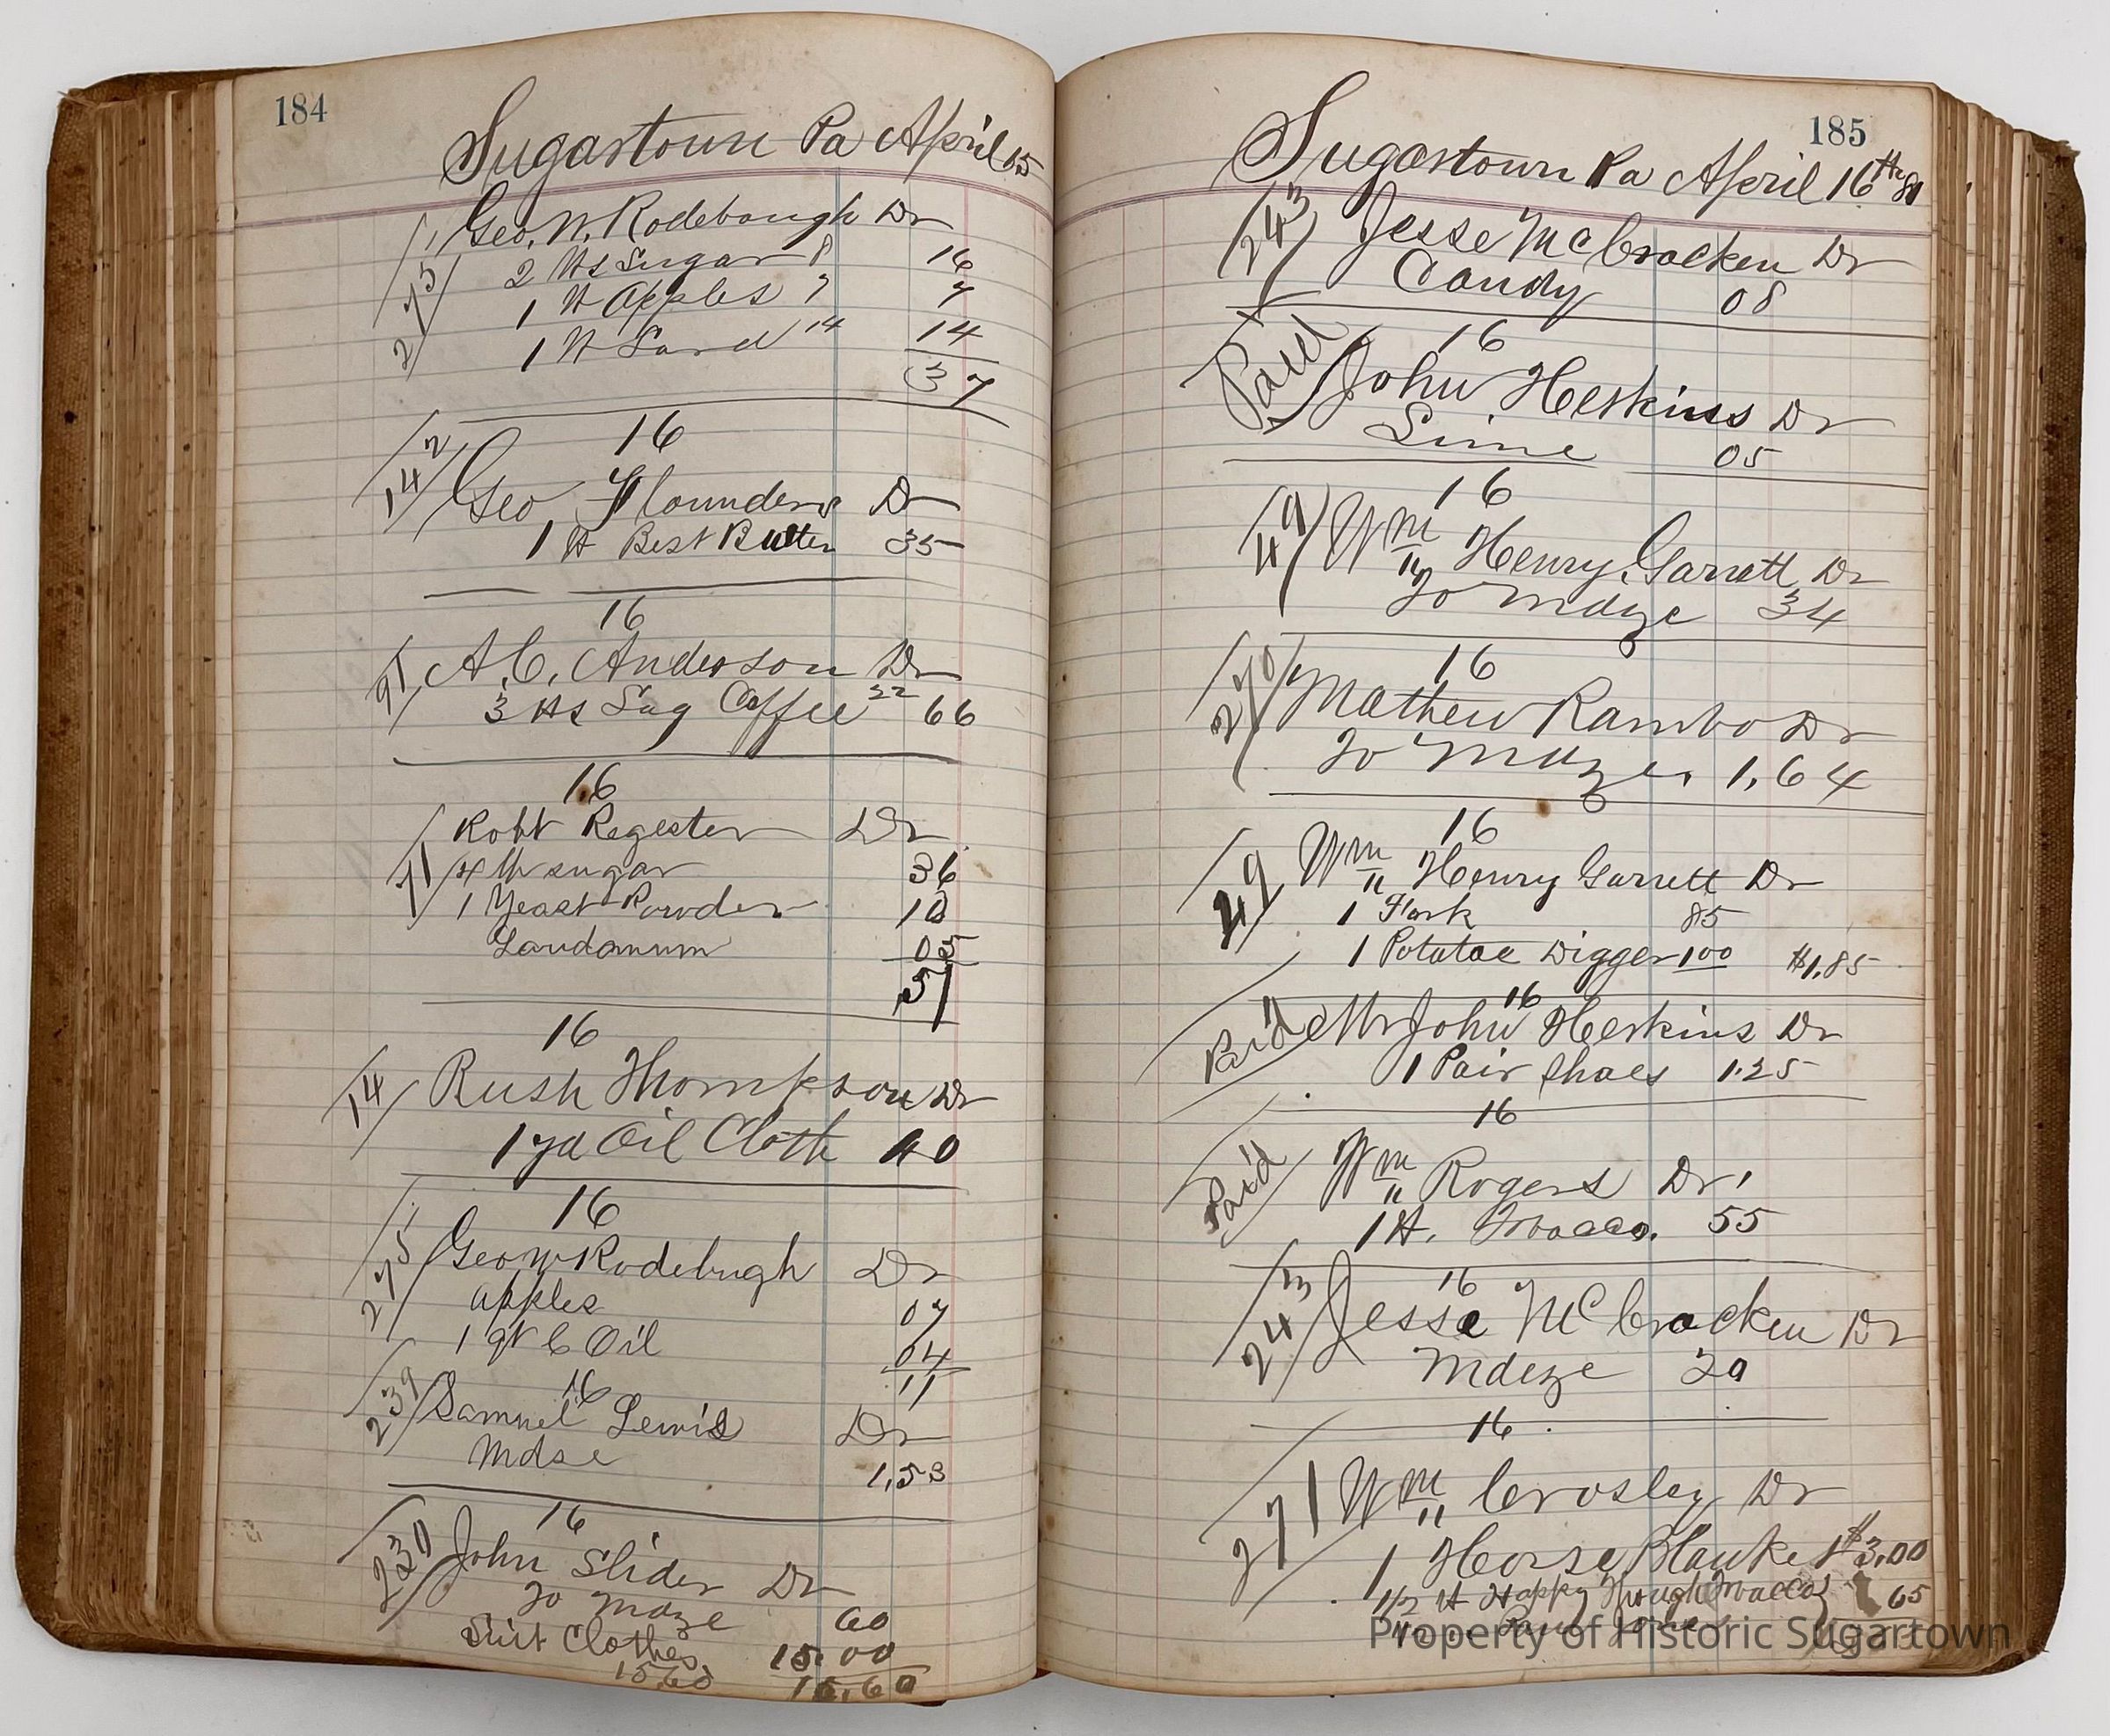 184
Sugartown Pa April 15
Geo. W. Rodebough Dr
275
2 lbs Sugar 8 16
1 lb Apples 7 7
1 lb Lard 14 14
37
16
142
Geo Flounders Dr
1 lb Best Butter 35
16
91 A. C. Anderson Dr
3 lbs Lag Coffee 22 66
16
Robt Regester Dr
71 4 lb sugar 36
1 Yeast Powder 10
Laudanum 05
51
16
14 Rush Thompson Dr
1 yd Oil Cloth 40
16
275 Geo W Rodebugh Dr
apples 07
1 qt C Oil 04
11
16
239 Samuel Lewis Dr
Mdse 1.53
16
230 John Slider Dr
To Mdze 60
Suit Clothes 15.00
15.60 15.60
185
Sugartown Pa April 16th 81
243 Jesse McCracken Dr
Candy 08
16
Paid John Heskins Dr
Lime 05
16
49 Wm Henry Garrett Dr
To Mdze 34
16
270 Mathew Rambo Dr
To Mdze. 1.64
16
49 Wm Henry Garrett Dr
1 Fork 85
1 Potatoe Digger 100 $1.85
16
Paid Mr John Heskins Dr
1 Pair Shoes 1.25
16
Paid Wm Rogers Dr
1 lb. Tobacco. 55
16
243 Jesse McCracken Dr
Mdze 20
16
271 Wm Crosley Dr
1 Horse Blanket $3.00
1/2 lb Happy Thought Tobacco 65
Property of Historic Sugartown